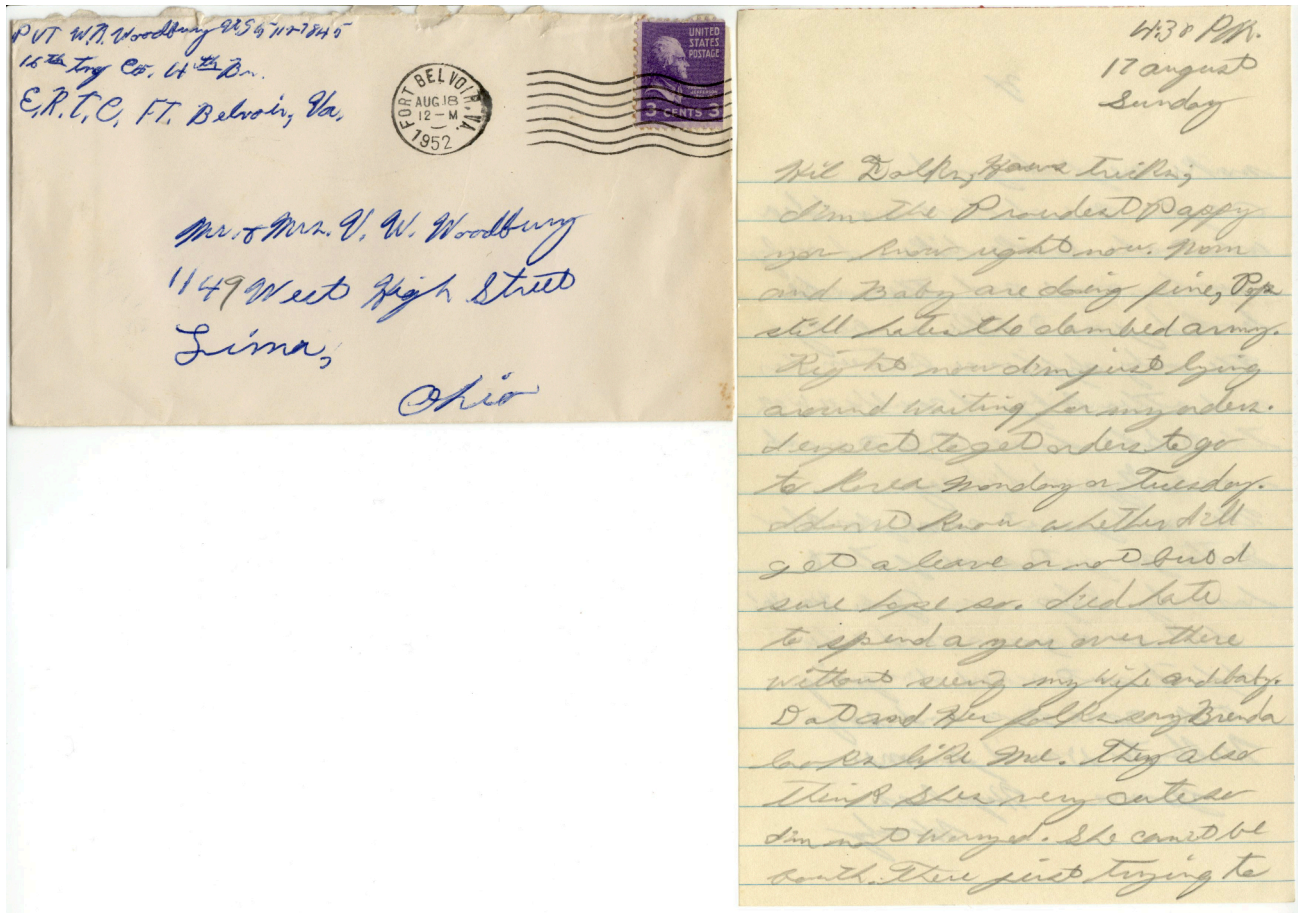 PVT W.A. Woodbury US 51127845
16th Trng Co. 4th Bn.
E.R.T.C. FT. Belvoir, Va.
FORT BELVOIR, VA.
AUG 18
12 - M
1952
UNITED
STATES
POSTAGE
3 CENTS 3
Mr. & Mrs. V. W. Woodbury
1149 West High Street
Lima,
Ohio
4:30 P.M.
17 august
Sunday
Hi Folks, Hows tricks,
I'm the Proudest Pappy
you know right now. Mom
and Baby are doing fine, Pop
still hates the dambed army.
Right now I'm just lying
around waiting for my orders.
I expect to get orders to go
to Korea Monday or Tuesday.
I don't know whether I'll
get a leave or not but I
sure hope so. I'ed hate
to spend a year over there
without seeing my wife and baby.
Dot and Her folks say Brenda
looks like Me. They also
think she's very cute so
I'm not worryed. She can't be
both. There just trying to